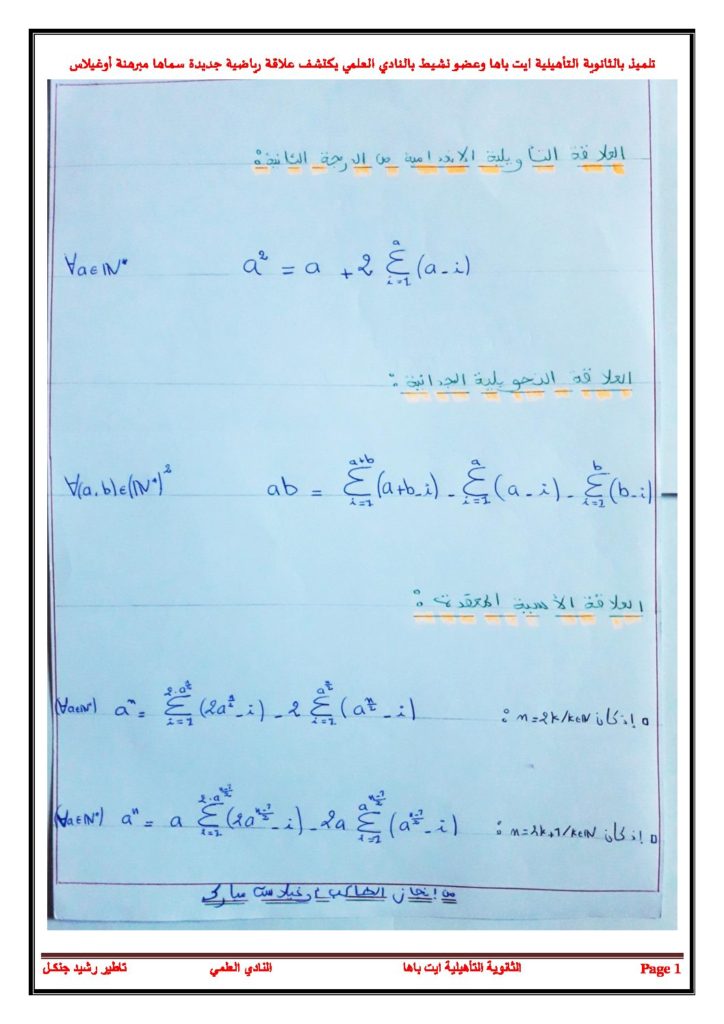 تلميذ بالثانوية التأهيلية ايت باها وعضو نشيط بالنادي العلمي يكتشف علاقة رياضية جديدة سماها مبرهنة أوغيلاس
العلاقة التاويلية الاندامية من الدرجة الثانية:
∀a∈ℕ* a² = a + 2 Σ_{i=1}^{a} (a-i)
العلاقة التحويلية الجدائية:
∀(a,b)∈(ℕ*)² ab = Σ_{i=1}^{a+b} (a+b-i) - Σ_{i=1}^{a} (a-i) - Σ_{i=1}^{b} (b-i)
العلاقة الأسية المعقدة:
▫ إذ كان n=2k/k∈ℕ : (∀a∈ℕ*) aⁿ = Σ_{i=1}^{2·a^{n/2}} (2a^{n/2}-i) - 2 Σ_{i=1}^{a^{n/2}} (a^{n/2}-i)
▫ إذ كان n=2k+1/k∈ℕ : (∀a∈ℕ*) aⁿ = a Σ_{i=1}^{2·a^{(n-1)/2}} (2a^{(n-1)/2}-i) - 2a Σ_{i=1}^{a^{(n-1)/2}} (a^{(n-1)/2}-i)
من إنجاز الطالب أوغيلاست مبارك
Page 1 الثانوية التأهيلية ايت باها النادي العلمي تاطير رشيد جنكل